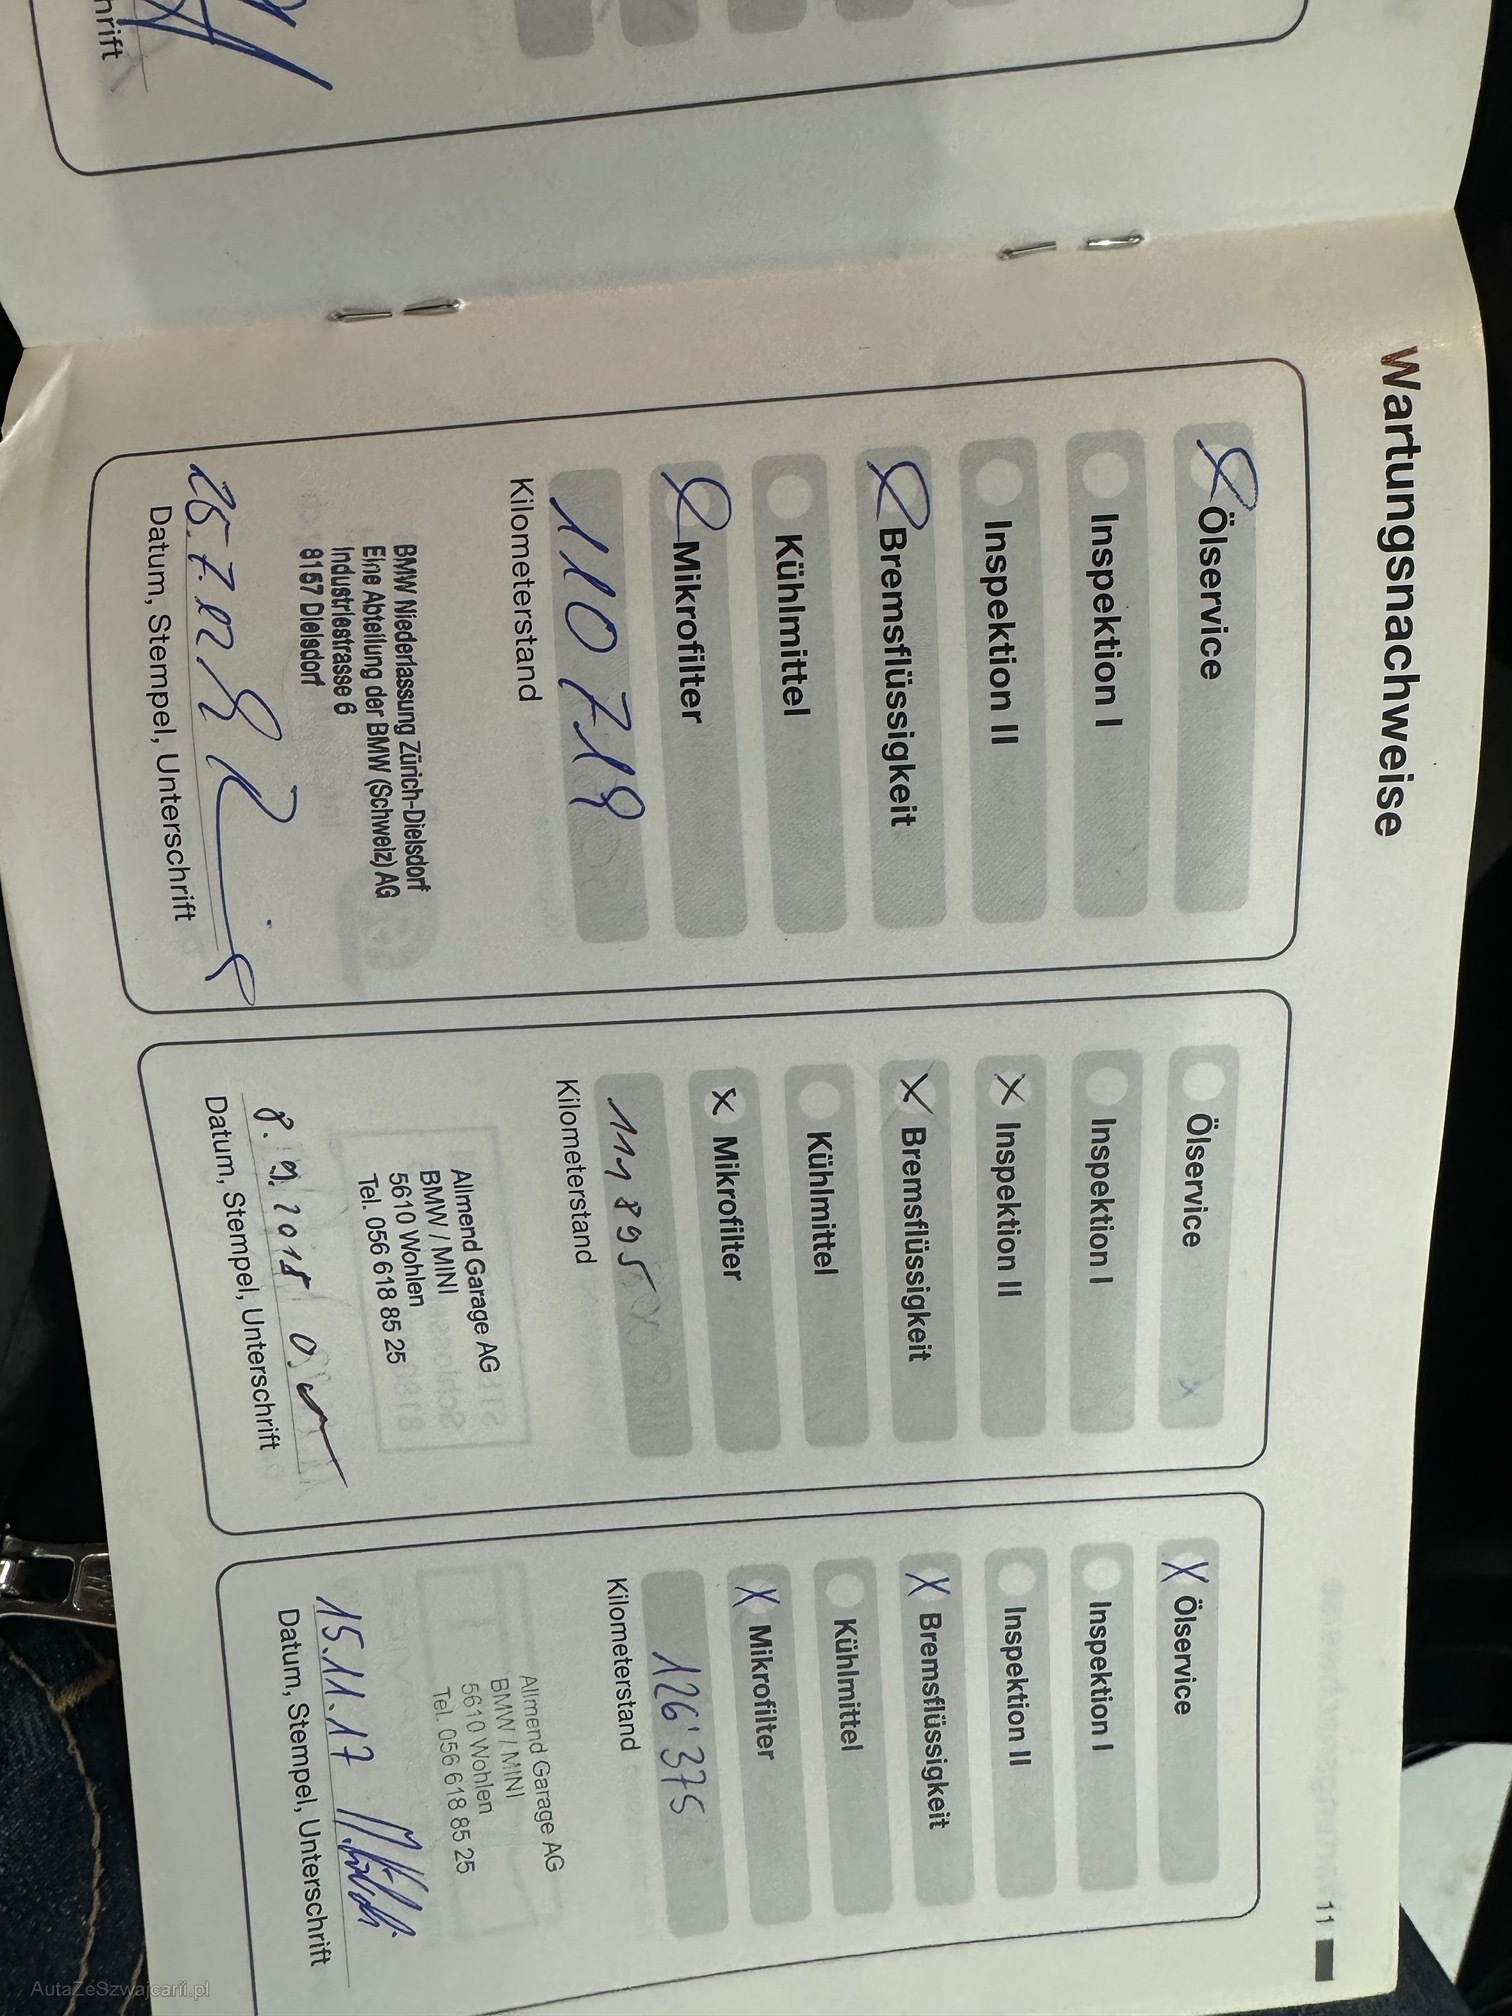 hrift
Wartungsnachweise
Ölservice
Inspektion I
Inspektion II
Bremsflüssigkeit
Kühlmittel
Mikrofilter
110 718
Kilometerstand
BMW Niederlassung Zürich-Dielsdorf
Eine Abteilung der BMW (Schweiz) AG
Industriestrasse 6
8157 Dielsdorf
Datum, Stempel, Unterschrift
Ölservice
Inspektion I
X Inspektion II
X Bremsflüssigkeit
Kühlmittel
X Mikrofilter
111895
Kilometerstand
Allmend Garage AG
BMW / MINI
5610 Wohlen
Tel. 056 618 85 25
Datum, Stempel, Unterschrift
X Ölservice
Inspektion I
Inspektion II
X Bremsflüssigkeit
Kühlmittel
X Mikrofilter
126'375
Kilometerstand
Allmend Garage AG
BMW / MINI
5610 Wohlen
Tel. 056 618 85 25
15.11.17
Datum, Stempel, Unterschrift
11
AutaZeSzwajcarii.pl